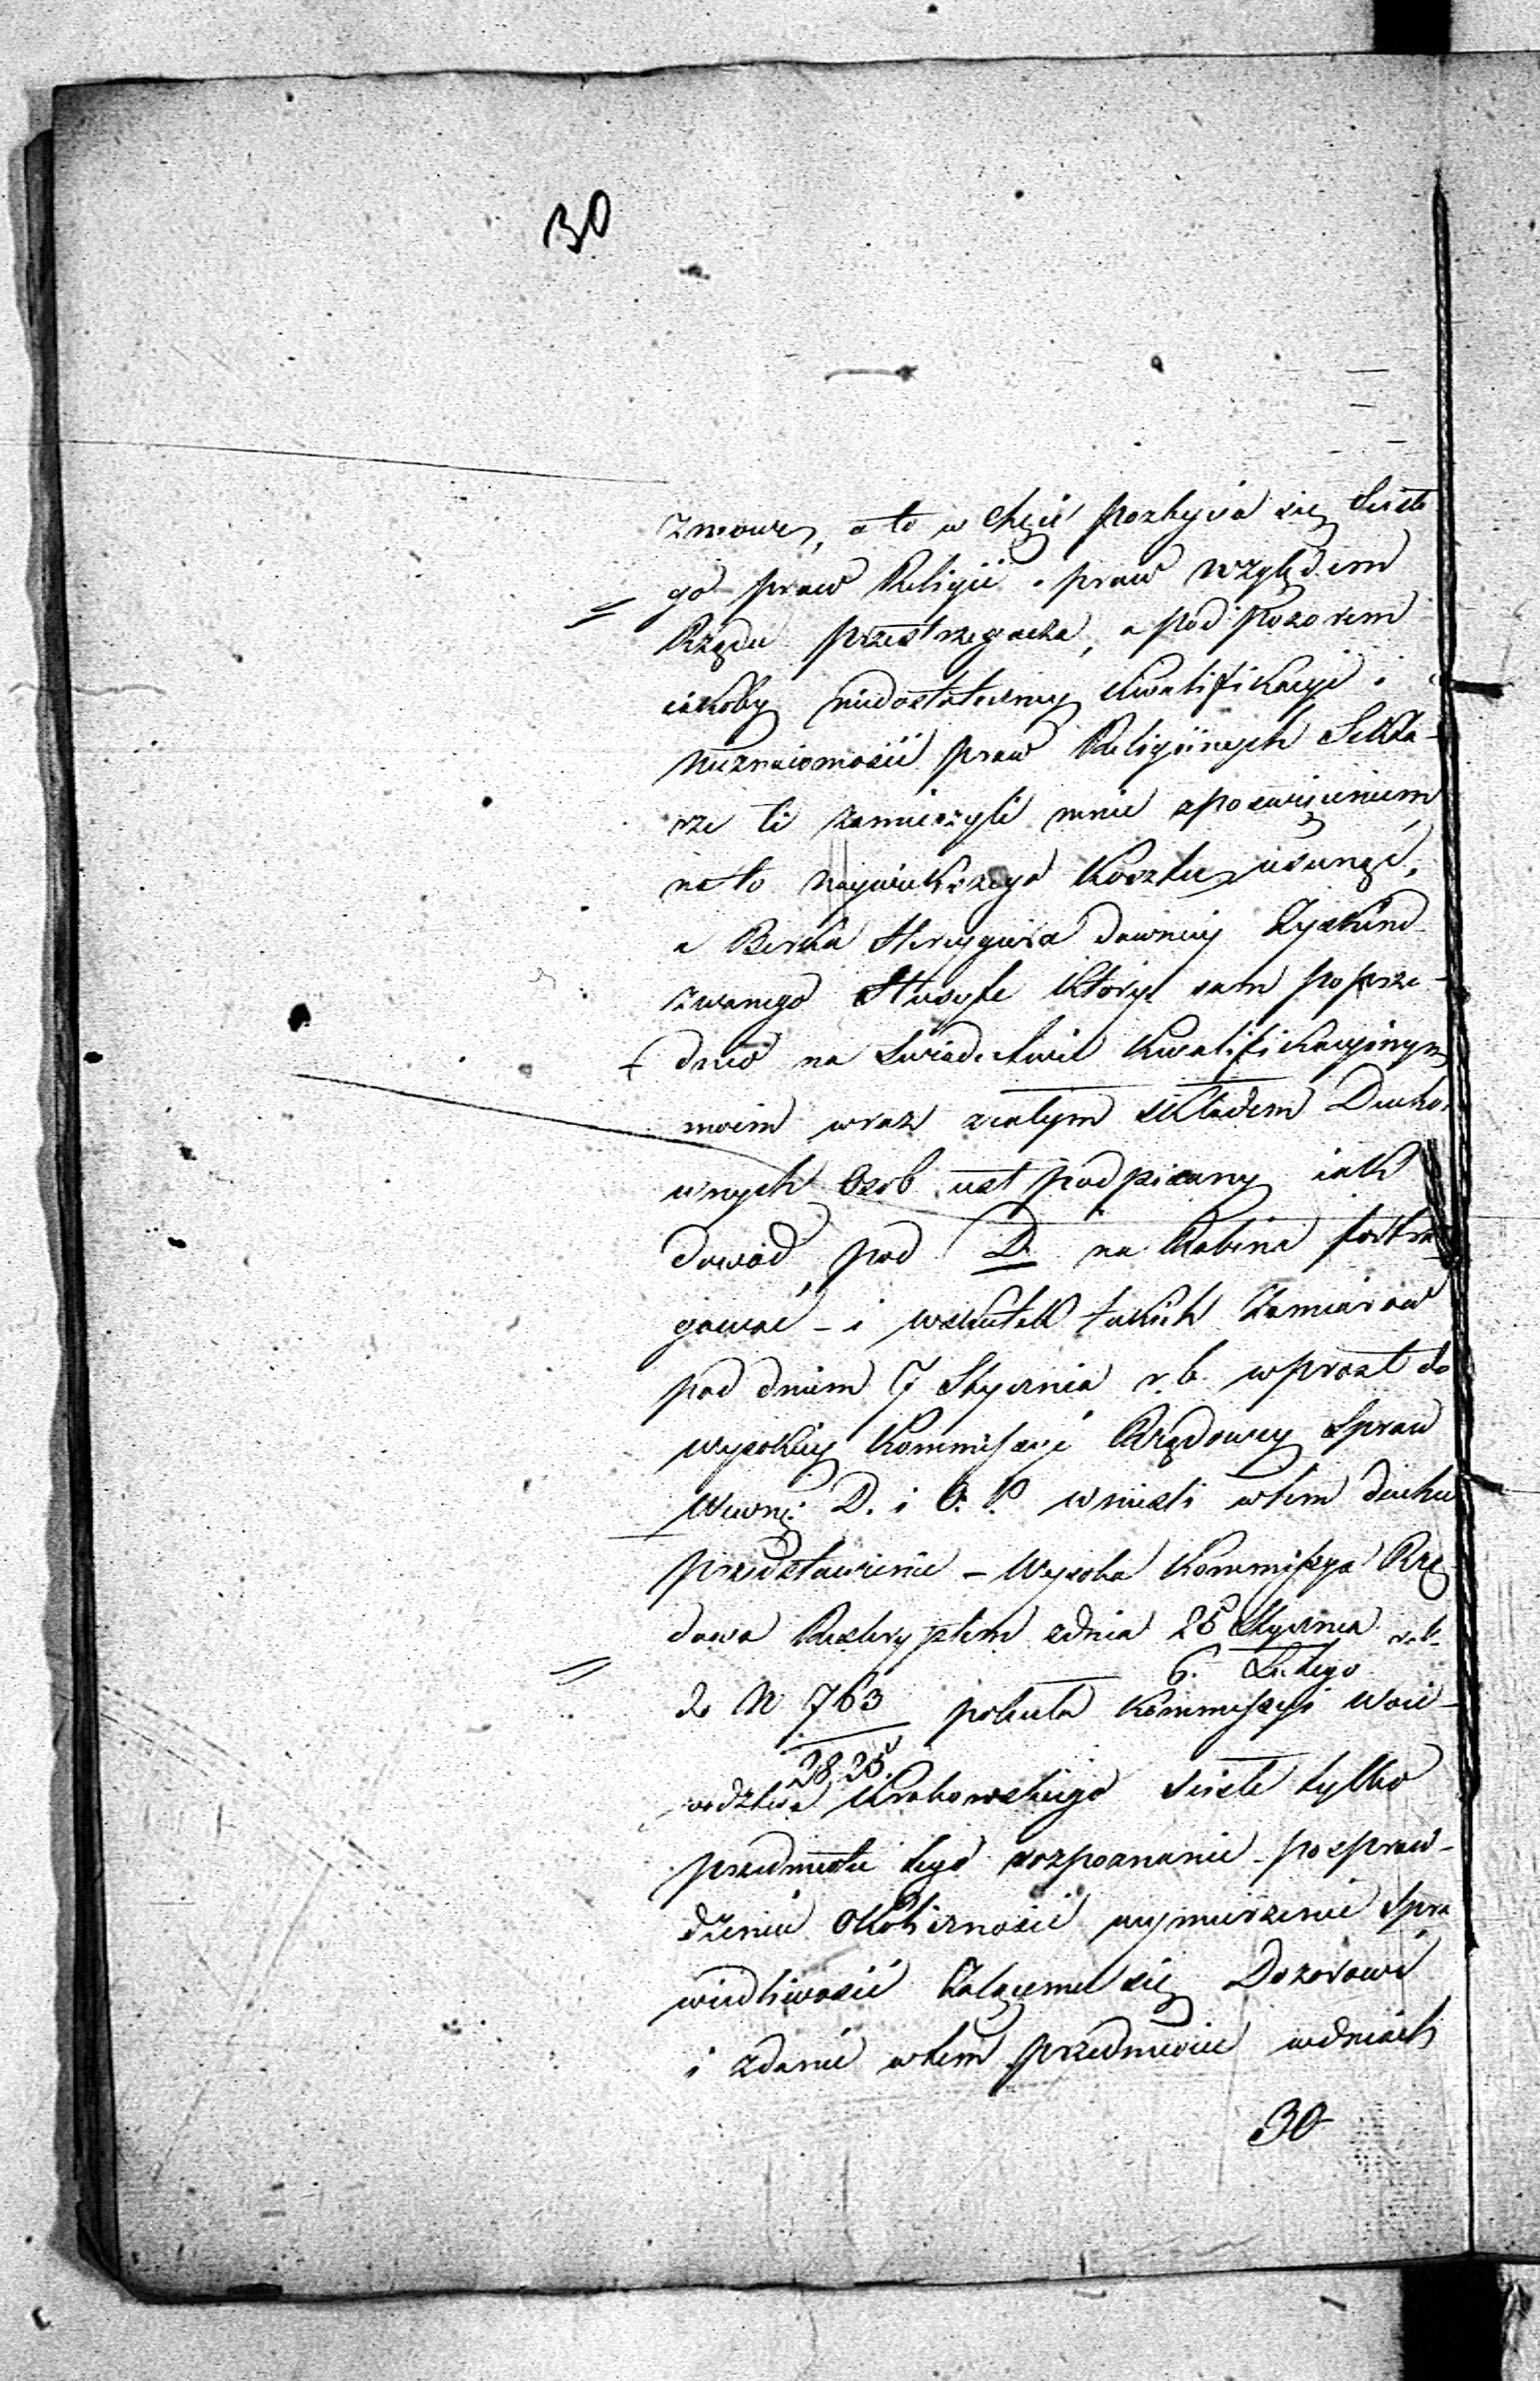 30
zmowę, a to w chęci pozbycia się ściśle
go praw Religii i praw względem
Rządu przestrzegacza, a pod pozorem
iakoby niedostateczney kwalifikacyi i
nieznaiomości praw Religijnych Sekta-
rze ci zamierzyli mnie z poswięceniem
na to naywiększego kosztu usunąć,
a Berka Herczynera dawniey Zyskind
zwanego który sam poprze-
dnio na Swiadectwie kwalifikacyinym
moim wraz z całym składem Ducho-
wnych Osob iest podpisany iak
dowód pod D. na Rabina
gować – i wskutek takich zamiarów
pod dniem 7 Stycznia r. b. wprost do
wysokiey Kommissyi Rządowey Spraw
Wewnę. D. i O. P. wnieśli w tem duchu
przedstawienie – Wysoka Kommissya Rzą
dowa Reskryptem z dnia 25 Stycznia r. b.
6. Lutego
do N 763 poleciła Kommissyi Woie-
2825
wodztwa Krakowskiego ściśle tylko
przedmiotu tego rozpoznanie – po spraw-
dzeniu okoliczności wymierzenie spra
wiedliwości żalącemu się Dozorowi
i zdanie w tem przedmiocie w dniach
30